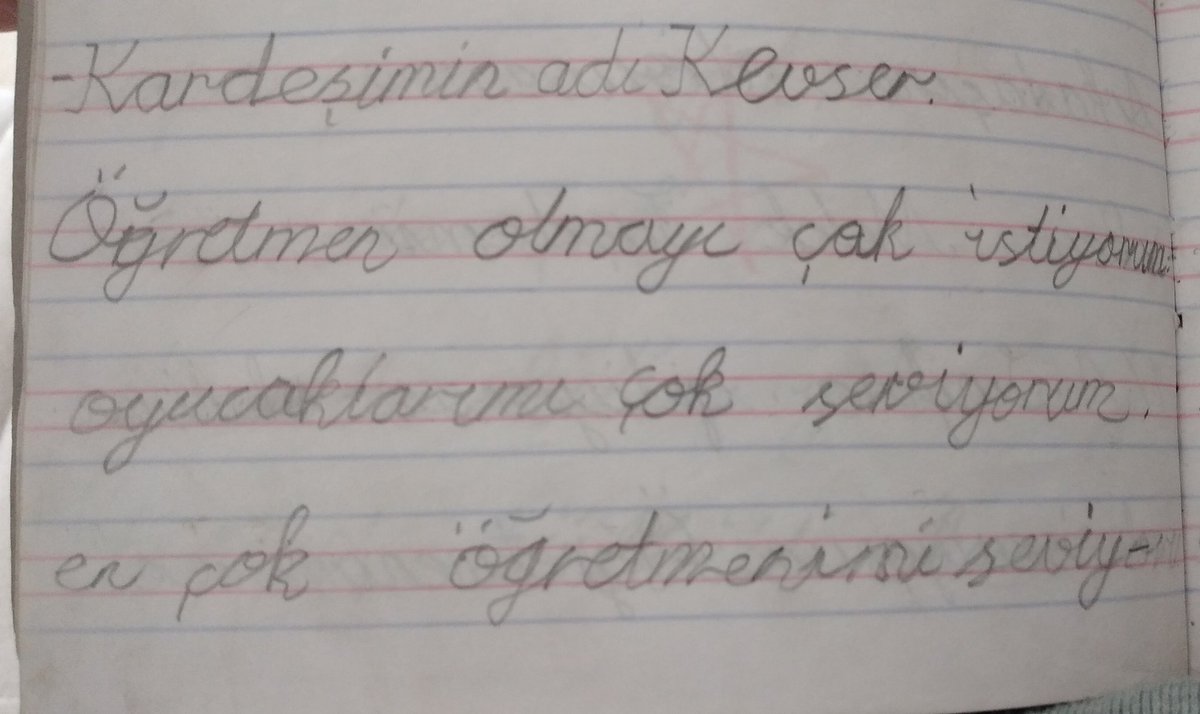 -Kardeşimin adı Kevser.
Öğretmen olmayı çok istiyorum.
oyucaklarımı çok seviyorum.
en çok öğretmenimi seviy-